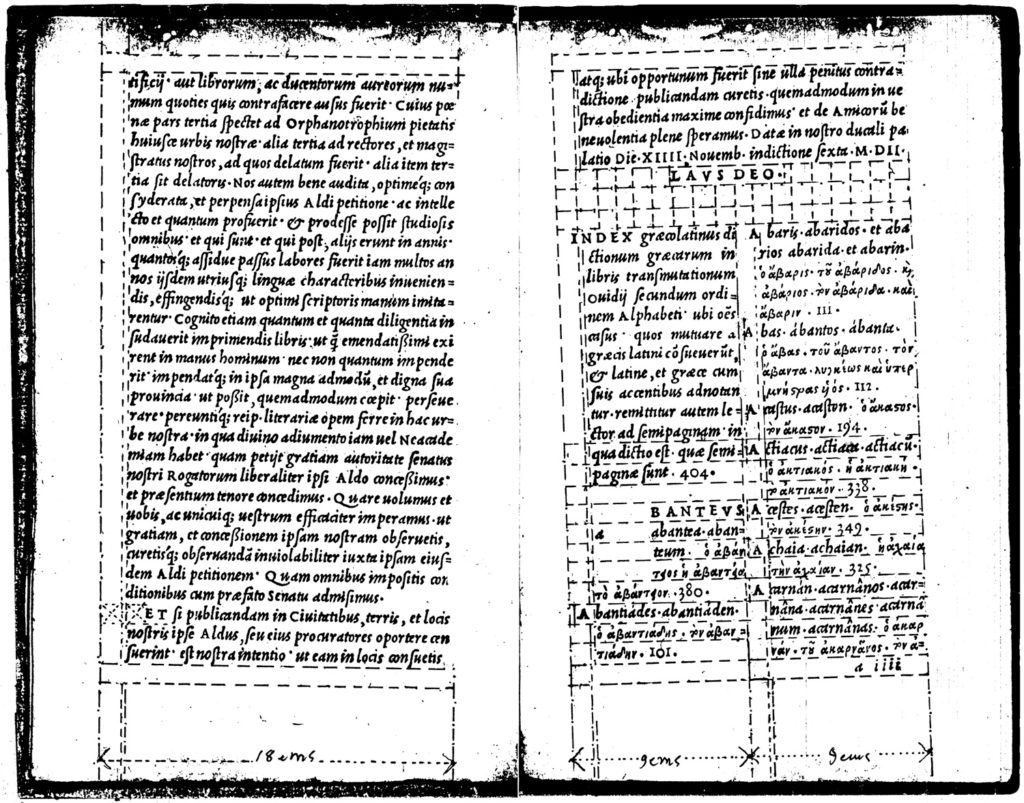 tificij· aut librorum, ac ducentorum aureorum nu=
mum quoties quis contrafacere ausus fuerit· Cuius pœ
næ pars tertia spectet ad Orphanotrophium pietatis
huiusce urbis nostræ· alia tertia ad rectores, et magi=
stratus nostros, ad quos delatum fuerit· alia item ter=
tia sit delatoris· Nos autem bene audita, optimeq; con
syderata, et perpensa ipsius Aldi petitione· ac intelle
cto et quantum profuerit· & prodesse possit studiosis
omnibus· et qui sunt· et qui post, alijs erunt in annis·
quantosq; assidue passus labores fuerit iam multos an
nos ijsdem utriusq; linguæ characteribus inuenien=
dis, effingendisq; ut optimi scriptoris manum imita=
rentur· Cognito etiam quantum et quanta diligentia in
sudauerit imprimendis libris· ut q̃ emendatißimi exi
rent in manus hominum· nec non quantum impende
rit· impendatq; in ipsa magna admodũ, et digna sua
prouincia· ut poßit, quemadmodum cœpit· perseue
rare· pereuntiq; reip· literariæ opem ferre in hac ur=
be nostra· in qua diuino adiumento iam uel Neacade
miam habet· quam petijt gratiam autoritate senatus
nostri Rogatorum liberaliter ipsi Aldo conceßimus·
et præsentium tenore concedimus· Quare uolumus et
uobis, ac unicuiq; uestrum efficaciter imperamus· ut
gratiam, et conceßionem ipsam nostram obseruetis,
curetisq; obseruandã inuiolabiliter iuxta ipsam eius=
dem Aldi petitionem· Quam omnibus impositis con
ditionibus cum præfato Senatu admisimus·
ET si publicandam in Ciuitatibus, terris, et locis
nostris ipse Aldus, seu eius procuratores oportere cen
suerint· est nostra intentio· ut eam in locis consuetis
18 ems
atq; ubi opportunum fuerit sine ulla penitus contra=
dictione publicandam curetis· quemadmodum in ue
stra obedientia maxime confidimus· et de Amicorũ be
neuolentia plene speramus· Datæ in nostro ducali pa
latio Die·XIIII· Nouemb· indictione sexta·M·DII·
LAVS DEO·
INDEX græcolatinus di
ctionum græcarum in
libris transmutationum
Ouidij secundum ordi=
nem Alphabeti· ubi oẽs
casus· quos mutuare a
græcis latini cõsueuerũt,
& latine, et græce cum
suis accentibus adnotan
tur· remittitur autem le=
ctor ad semipaginam in
qua dictio est· quæ semi=
paginæ sunt· 404·
A BANTEVS
abantea·aban=
teum· ὁ ἀβάν
τειος ἡ ἀβαντεία
τὸ ἀβάντειον· 380·
A bantiades·abantiaden·
ὁ ἀβαντιάδης· τὸν ἀβαν=
τιάδην· 101·
9 ems
A baris·abaridos·et aba
rios abarida·et abarin·
ὁ ἄβαρις· τοῦ ἀβάριδος· καὶ
ἀβάριος· τὸν ἀβάριδα· καὶ
ἄβαριν· 111·
A bas·ábantos·ábanta·
ὁ ἄβας· τοῦ ἄβαντος· τὸν
112·
A castus·acaston· ὁ ἄκαστος·
τὸν ἄκαστον· 194·
A ctiacus·actiaca·actiacũ·
ὁ ἀκτιακὸς· ἡ ἀκτιακὴ·
τὸ ἀκτιακόν· 338·
A cestes·acesten· ὁ ἀκέστης·
τὸν ἀκέστην· 349·
A chaia·achaian· ἡ ἀχαία
τὴν ἀχαίαν· 325·
A carnán·acarnános·acar=
nána·acarnánes·acarná
num·acarnánas· ὁ ἀκαρ
νάν· τοῦ ἀκαρνᾶνος· τὸν ἀ=
a iiii
9 ems